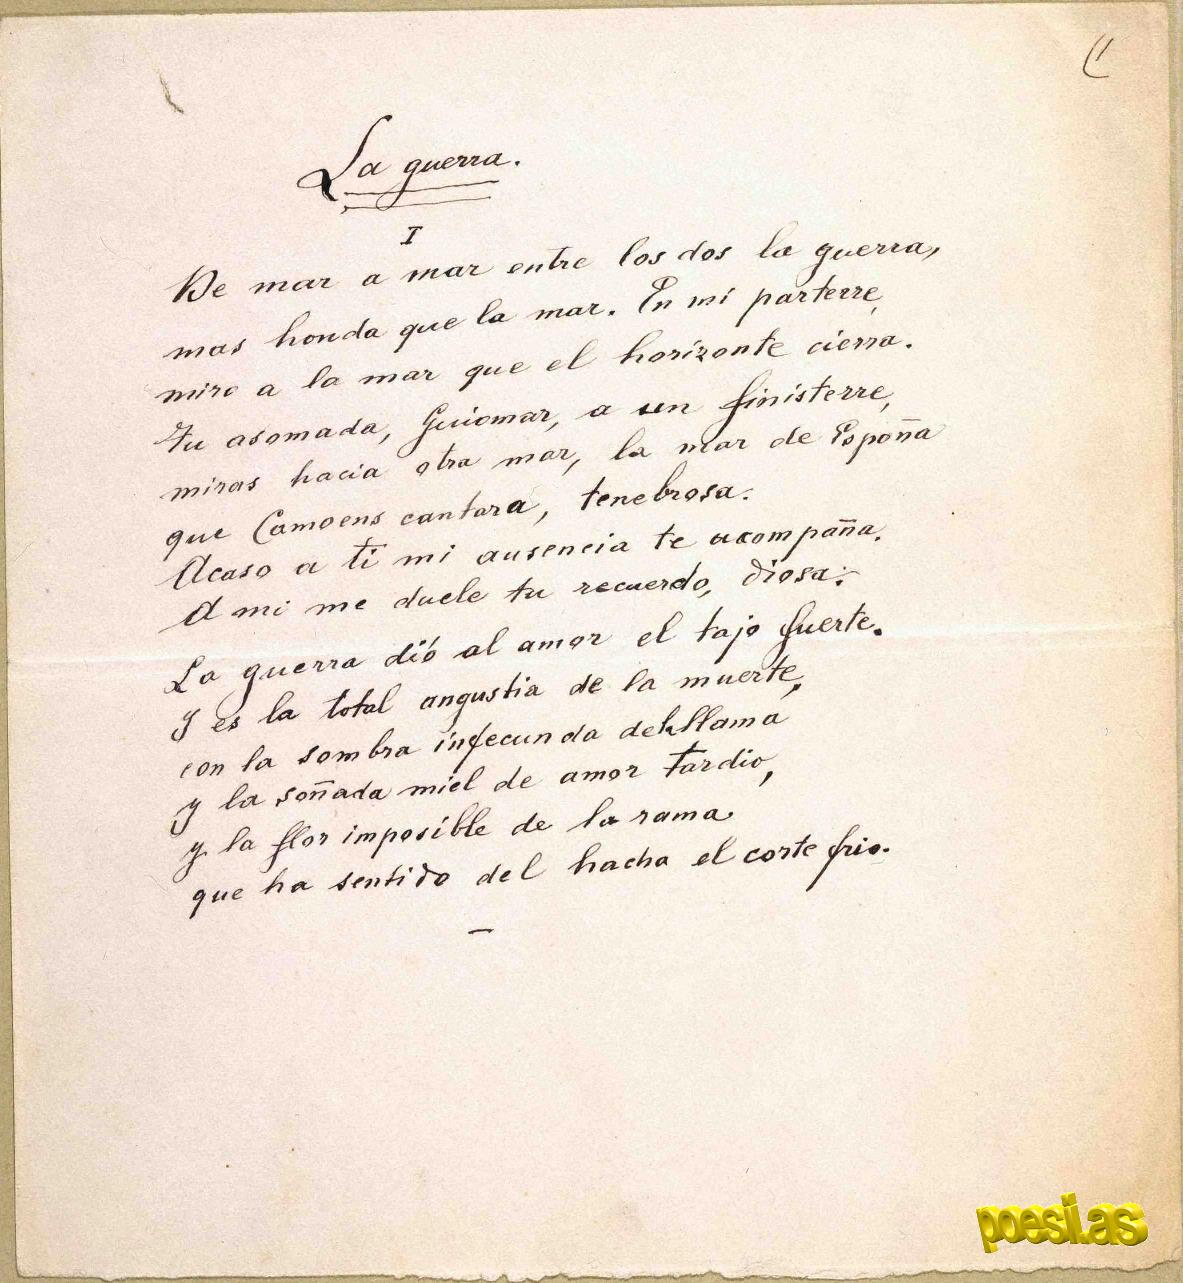 La guerra.
I
De mar a mar entre los dos la guerra,
mas honda que la mar. En mi parterre,
miro a la mar que el horizonte cierra.
Tu asomada, Guiomar, a un finisterre,
miras hacia otra mar, la mar de España
que Camoens cantara, tenebrosa.
Acaso a ti mi ausencia te acompaña.
A mi me duele tu recuerdo, diosa.
La guerra dió al amor el tajo fuerte.
Y es la total angustia de la muerte,
con la sombra infecunda de la llama
y la soñada miel de amor tardio,
y la flor imposible de la rama
que ha sentido del hacha el corte frio.
poesi.as